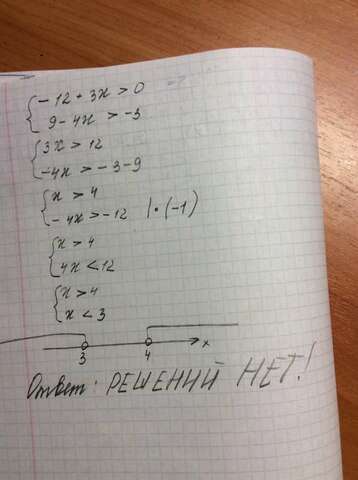 { - 12 + 3x > 0
9 - 4x > -3
{ 3x > 12
-4x > -3-9
{ x > 4
-4x > -12 | · (-1)
{ x > 4
4x < 12
{ x > 4
x < 3
3 4 x
Ответ: РЕШЕНИЙ НЕТ!